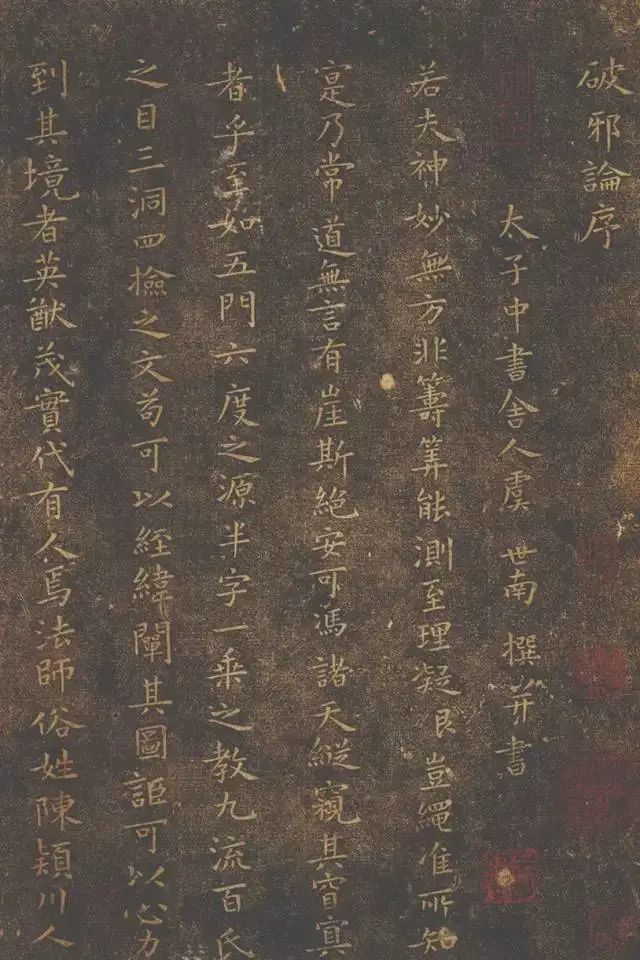 破邪論序
太子中書舍人虞世南撰并書
若夫神妙無方非籌筭能測至理凝邈豈繩准所知
寔乃常道無言有崖斯絶安可馮諸天縱窺其窅寘
者乎至如五門六度之源半字一乘之教九流百氏
之目三洞四撿之文苟可以經緯闡其圖詎可以心力
到其境者英猷茂實代有人焉法師俗姓陳潁川人